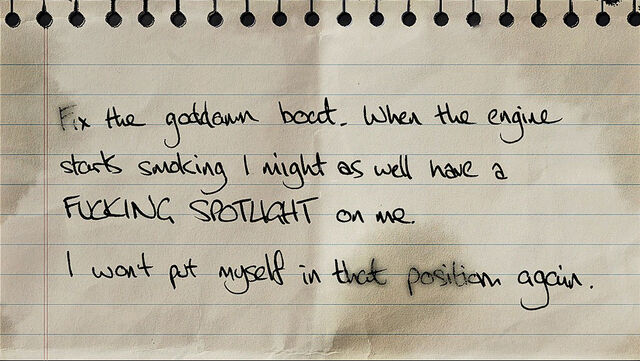 Fix the goddamn boat. When the engine
starts smoking I might as well have a
FUCKING SPOTLIGHT on me.
I won't put myself in that position again.